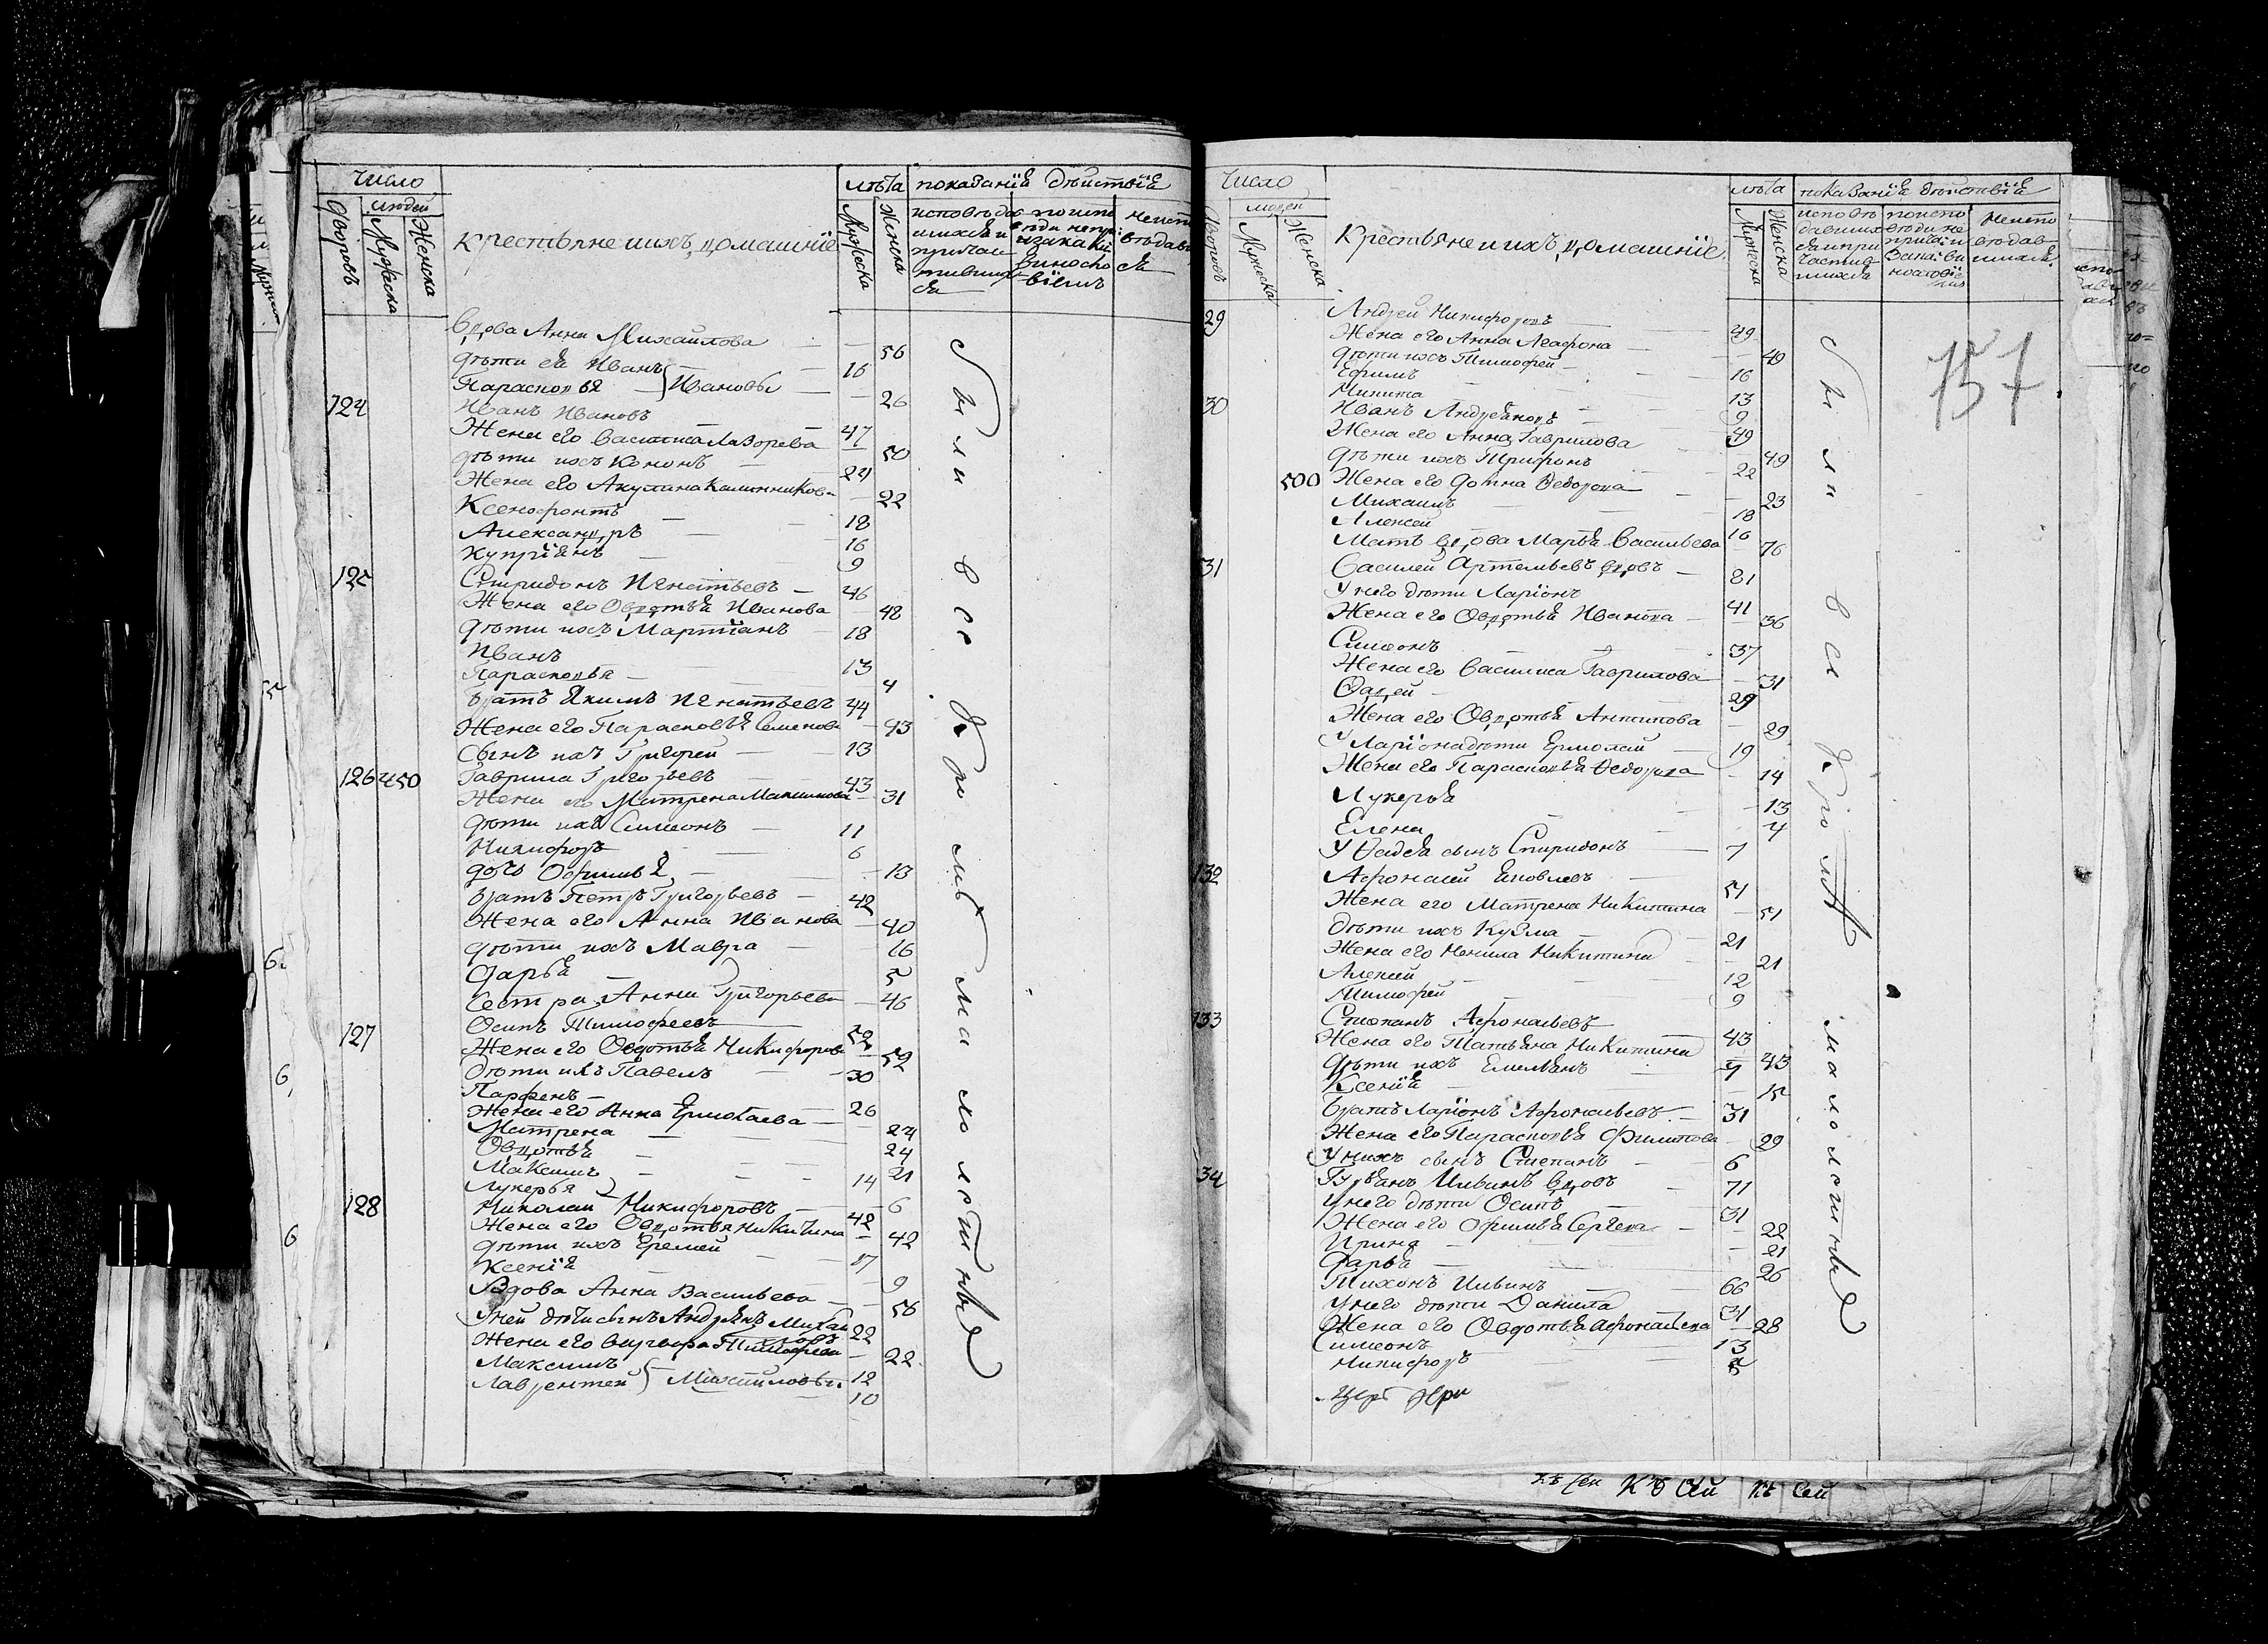 Число
людей
Дворовъ
Мужеска
Женска
Крестьяне и ихъ домашнїе
лѣта
Мужеска
Женска
показанїе дѣйствїе
Вдова Анна Михайлова — 56
дѣти ея Иванъ 16
Парасковья } Ивановы — 26
124 Иванъ Ивановъ 47
Жена его Василиса Лазорева — 50
дѣти ихъ Кононъ 24
Жена его Акулина Калинникова — 22
Ксенофонтъ 18
Александръ 16
Купрїянъ 9
125 Спиридонъ Игнатьевъ 46
Жена его Овдотья Иванова 48
дѣти ихъ Мартїанъ 18
Иванъ 13
Парасковья 4
братъ Якимъ Игнатьевъ 44
Жена его Парасковья Семенова — 43
Сынъ ихъ Григорей 13
126 450 Гаврила Григорьевъ 43
Жена его Матрена Максимова — 31
дѣти ихъ Симеонъ 11
Никифоръ 6
дочь Офимья 13
братъ Петръ Григорьевъ 42
Жена его Анна Иванова — 40
дѣти ихъ Мавра 16
Дарья 5
Сестра Анна Григорьева — 46
127 Осипъ Тимофеевъ 52
Жена его Овдотья Никифорова — 52
дѣти ихъ Павелъ 30
Парфенъ 26
Жена его Анна Ермолаева — 24
Матрена 24
Овдотья 21
Максимъ 14
Лукерья 6
128 Николай Никифоровъ 42
Жена его Овдотья Никитина — 42
дѣти ихъ Еремей 17
Ксенїя 9
Вдова Анна Васильева — 56
У ней дѣти сынъ Андреянъ Михайловъ 22
Жена его Варвара Тимофеева — 22
Максимъ 12
Лаврентей } Михайловы 10
были все до сив малолетные
Число
людей
Дворовъ
Мужеска
Женска
Крестьяне и ихъ домашнїе
лѣта
Мужеска
Женска
показанїе дѣйствїе
157
29 Андрей Никифоровъ 49
Жена его Анна Агафонова — 40
дѣти ихъ Тимофей 16
Ефимъ 13
Никита 9
30 Иванъ Андреяновъ 49
Жена его Анна Гаврилова — 49
дѣти ихъ Трифонъ 22
500 Жена его Фотина Федорова — 23
Михаилъ 18
Алексей 16
Мать вдова Марья Васильева 76
31 Василей Артемьевъ вдовъ 81
У него дѣти Ларїонъ 41
Жена его Овдотья Иванова 36
Симеонъ 37
Жена его Василиса Гаврилова — 31
Фадей 29
Жена его Овдотья Антипова — 29
У Ларїона дѣти Ермолай 19
Жена его Парасковья Федорова — 14
Лукерья — 13
Елена 4
У Фадея сынъ Спиридонъ 7
132 Афонасей Яковлевъ 51
Жена его Матрена Никитина — 51
дѣти ихъ Кузма 21
Жена его Ненила Никитина — 21
Алексей 12
Тимофей 9
133 Степанъ Афонасьевъ 43
Жена его Татьяна Никитина — 43
дѣти ихъ Емельянъ
Ксенїя — 15
братъ Ларїонъ Афонасьевъ 31
Жена его Парасковья Филипова — 29
У нихъ сынъ Степанъ 6
34 Ильинъ вдовъ 71
У него дѣти Осипъ 31
Жена его Офимья Сергеева — 22
Ирина — 21
Дарья — 26
Тихонъ Ильинъ 66
У него дѣти Данила 31
Жена его Овдотья Афонасьева — 28
Симеонъ 13
Никифоръ
были малолетные